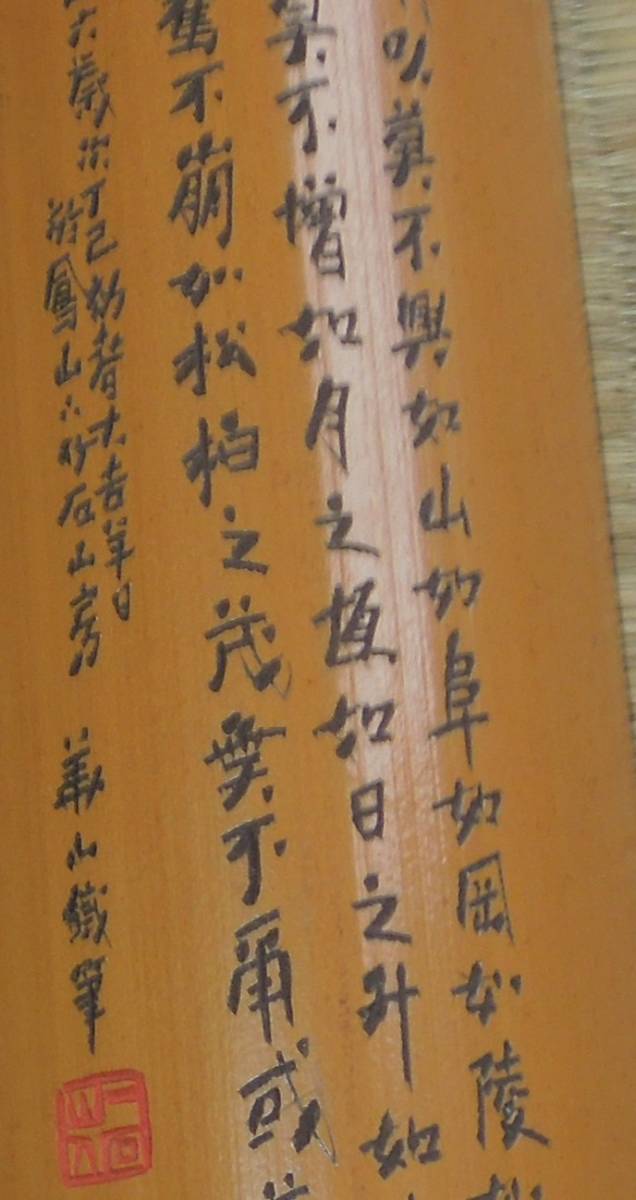 以莫不興如山如阜如岡如陵如
莫不增如月之恆如日之升如
騫不崩如松柏之茂無不爾或
六歲次丁巳初春大吉羊日
於鳳山之竹石山房 華山鐵筆